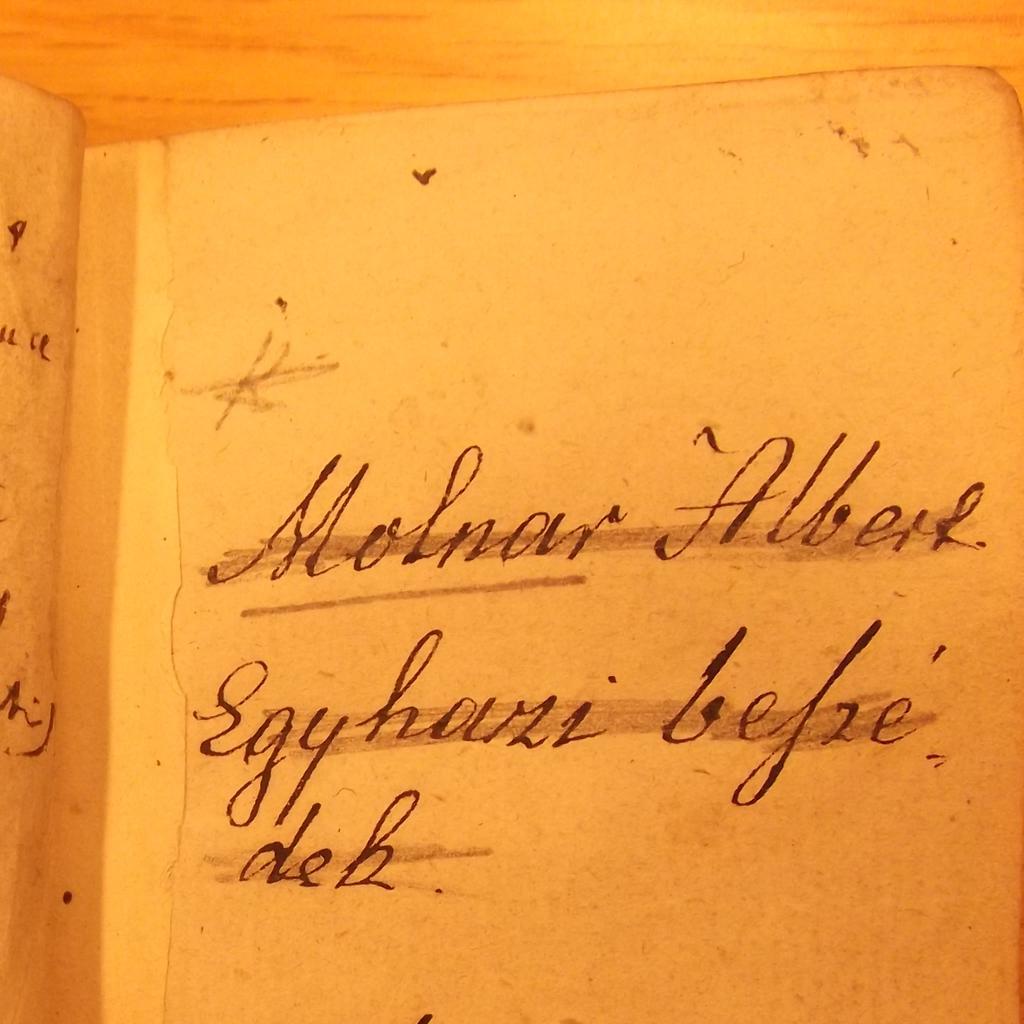 Molnar Albert
Egyhazi beſzé-
dek.